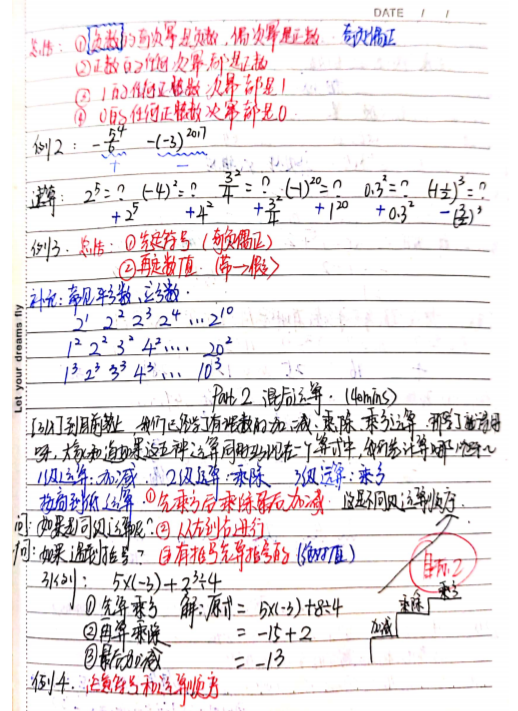 DATE / /
总结: ①负数的奇次幂是负数, 偶次幂是正数. 奇负偶正
②正数的任何次幂都是正数
③ 1的任何正整数次幂都是1
④ 0的任何正整数次幂都是0.
例2: -5⁴/6 -(-3)²⁰¹⁷
+ -
2⁵=? (-4)²=? 3²/4=? (-1)²⁰=? 0.3²=? (-1½)³=?
+2⁵ +4² +3²/4 +1²⁰ +0.3² -(3/2)³
例3. 总结: ①先定符号 (奇负偶正)
②再定数值. (带→假)
补充: 常见平方数, 立方数.
2¹ 2² 2³ 2⁴ ... 2¹⁰
1² 2² 3² 4² .... 20²
1³ 2³ 3³ 4³ ... 10³
Part 2 混合运算. (40mins)
我们到目前为止 我们已经学了有理数的加、减、乘、除、乘方运算
大家知道如果这五种运算同时出现在一个算式中, 我们先计算哪
1级运算: 加减 2级运算: 乘除 3级运算: 乘方
按高到低运算. ①先乘方后乘除最后加减 这是不同级运算顺序.
问: 如果是同级运算呢? ②从左到右进行
问: 如果遇到括号? 有括号先算括号的 (绝对值)
引例: 5×(-3)+2³÷4
①先算乘方 解: 原式= 5×(-3)+8÷4
②再算乘除 = -15+2
③最后加减 = -13
目标2
加减 乘除 乘方
例4. 注意符号和运算顺序
Let your dreams fly